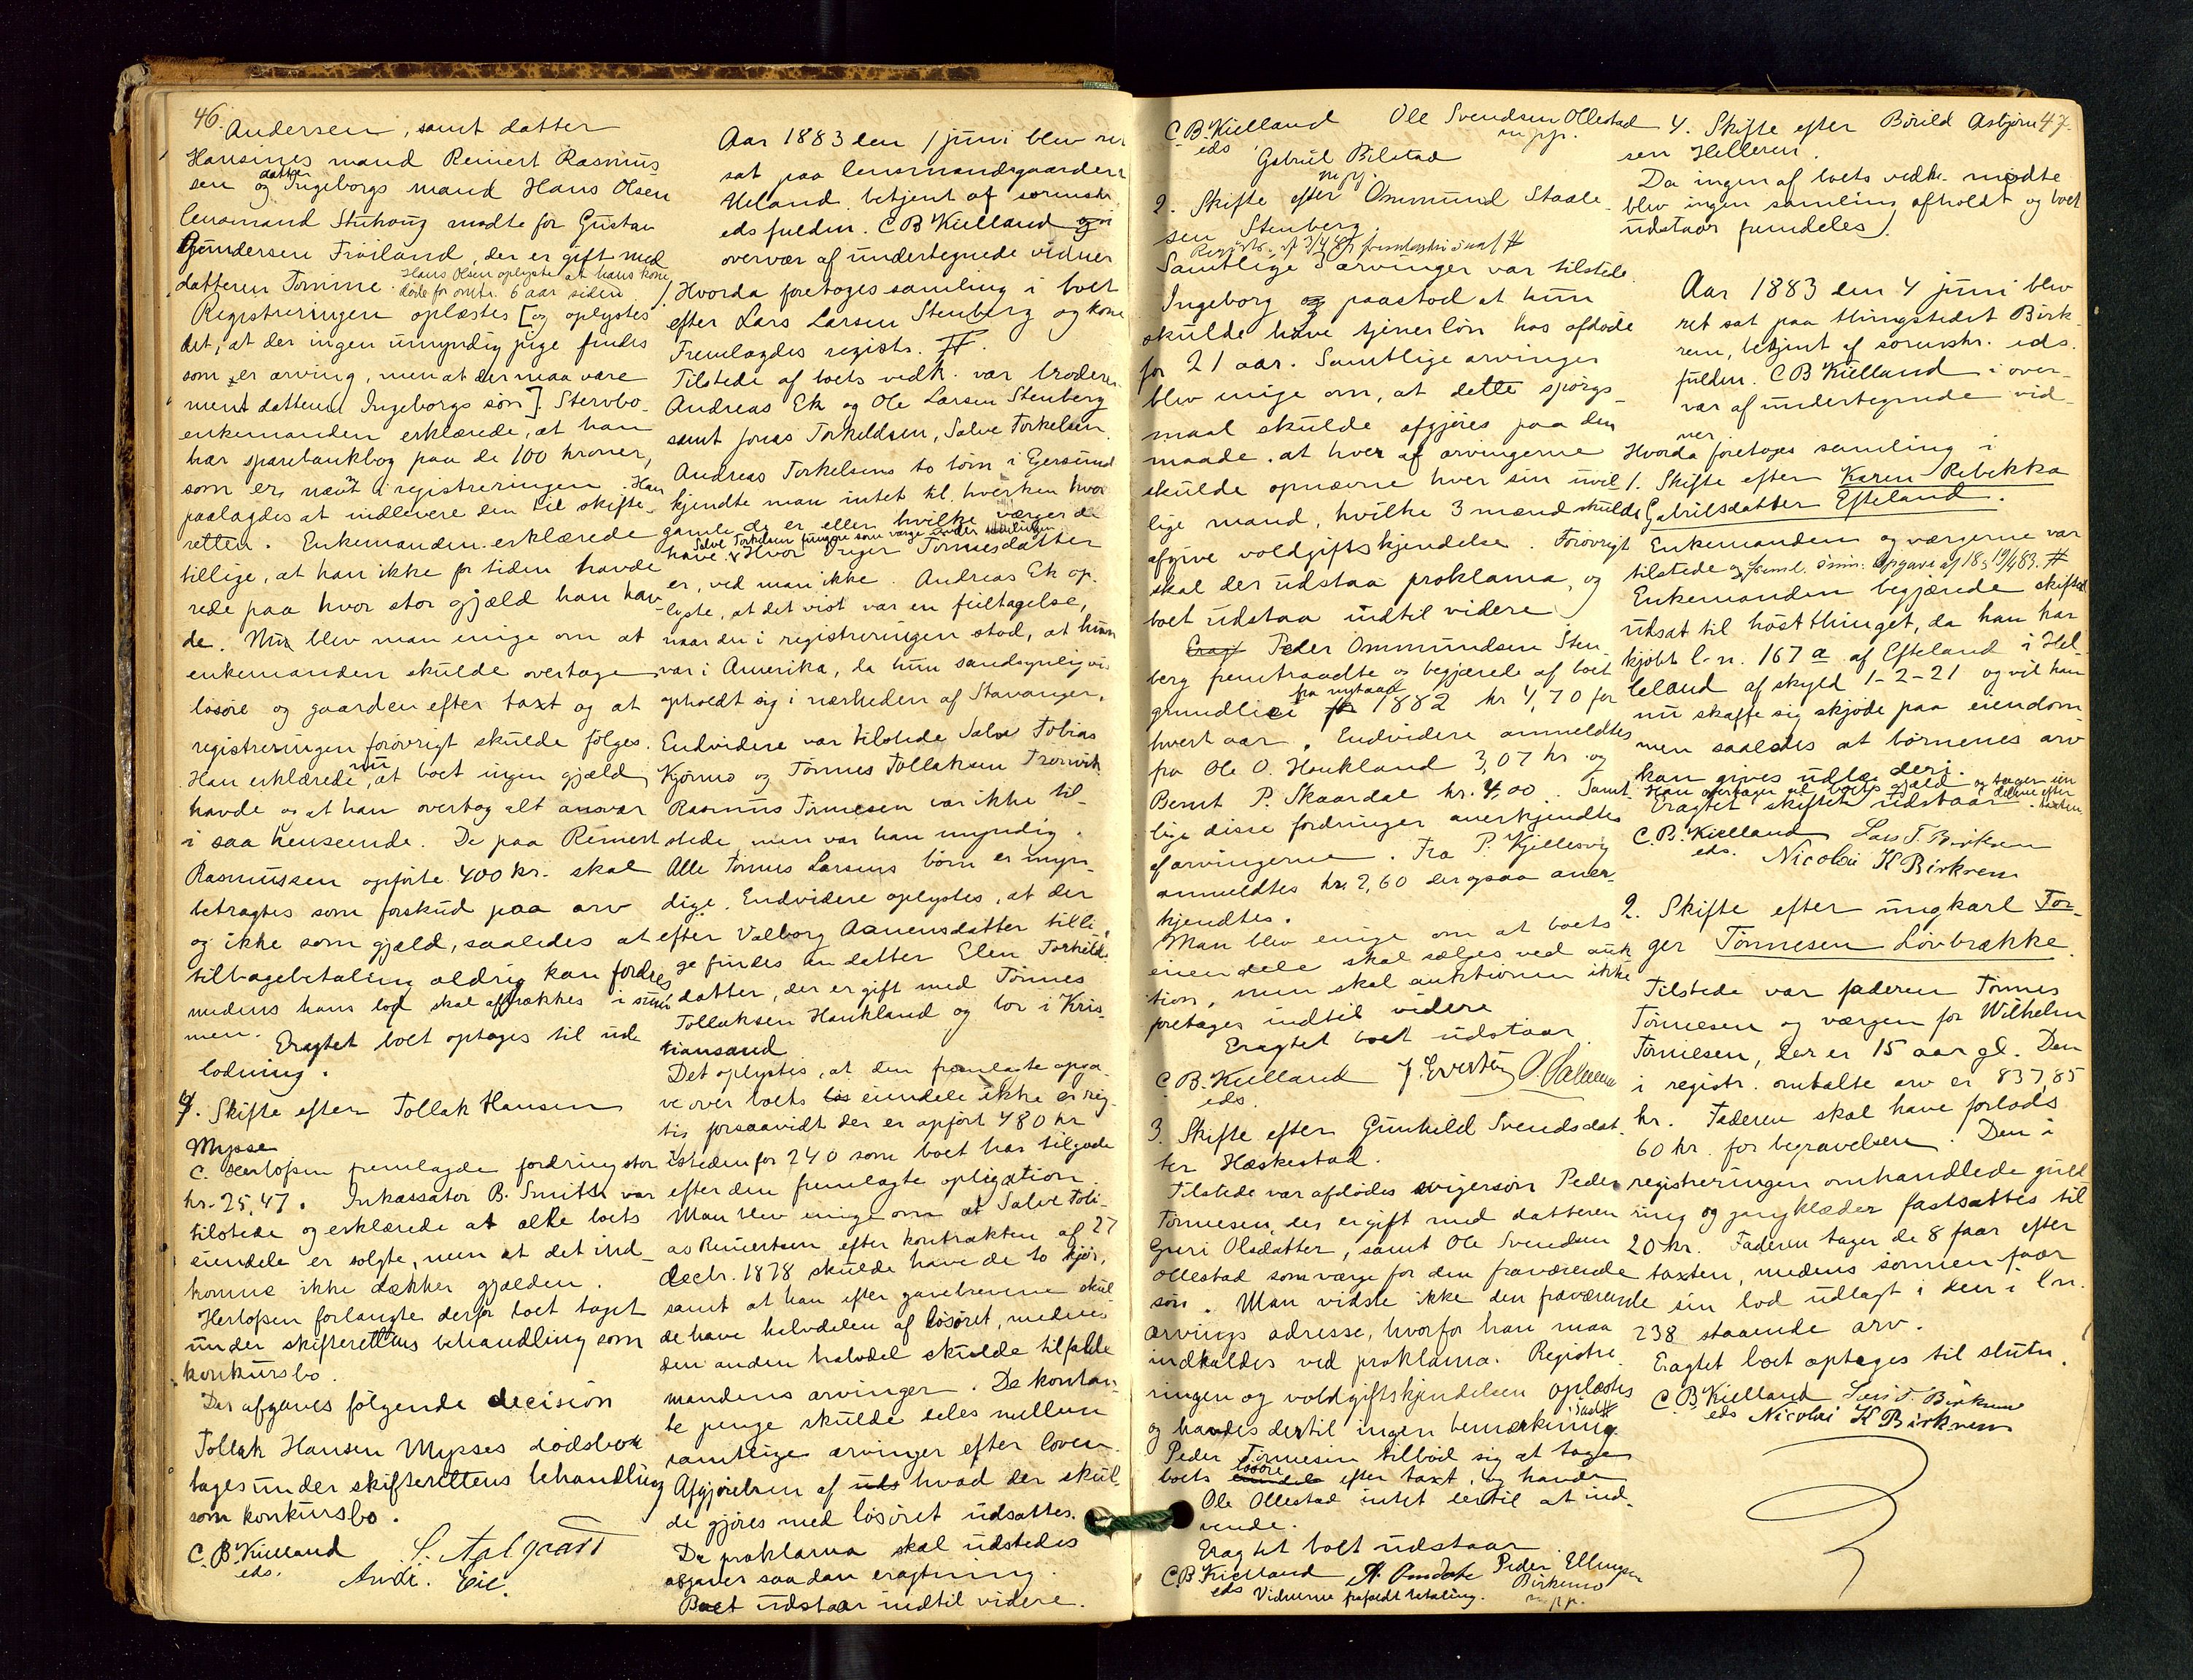 46.
Andersen, samt datter
Hansines mand Reinert Rasmus
sen og datter Ingeborgs mand Hans Olsen
lensmand Stuhoug mødte for Gustav
Gundersen Frøiland, der er gift med
datteren Tomine. Hans Olsen oplyste at hans kone
døde for omtr. 6 aar siden
Registreringen oplæstes [og oplystes
det, at der ingen umyndig pige findes
som er arving, men at der maa være
ment datteren Ingeborgs søn]. Stervbo-
enkemanden erklærede, at han
har sparebankbog paa de 100 kroner,
som er nævnt i registreringen. Han
paalagdes at indlevere den til skifte-
retten. Enkemanden erklærede
tillige, at han ikke for tiden havde
rede paa hvor stor gjæld han hav-
de. Nu blev man enige om at
enkemanden skulde overtage
løsøre og gaarden efter taxt og at
registreringen forøvrigt skulde følges.
Han erklærede nu, at boet ingen gjæld
havde og at han overtog alt ansvar
i saa henseende. De paa Reinert
Rasmussen opførte 400 kr. skal
betragtes som forskud paa arv
og ikke som gjæld, saaledes at
tilbagebetaling aldrig kan fordres
medens hans lod skal afdrækkes i sum
men.
Eragtet boet optages til ud-
lodning.
4. Skifte efter Tollak Hansen
Mysse
C. Herlofsen fremlagde fordring stor
kr. 25,47. Inkassator B. Smith var
tilstede og erklærede at alle boets
eiendele er solgte, men at det ind-
komne ikke dækker gjælden.
Herlofsen forlangte derfor boet taget
under skifterettens behandling som
konkursbo.
Der afgaves følgende decision
Tollak Hansen Mysses dødsbo
tages under skifterettens behandling
som konkursbo.
C. B. Kielland
eds.
Aar 1883 den 1 juni blev ret
sat paa lensmandsgaarden
Heland betjent af sorenskr.
eds fuldm. C B Kielland i
overvær af undertegnede vidner
1. Hvorda foretoges samling i boet
efter Lars Larsen Stenberg og kone
Fremlagdes registr. #.
Tilstede af boets vedk. var brodere
Andreas Ek og Ole Larsen Stenberg
samt Jonas Torkeldsen, Salve Torkelsen.
Andreas Torkelsens to børn i Egersund
kjendte man intet til, hverken hvor
gamle de er eller hvilke værger de
have. Salve Torkelsen fungere som værge under samlingen
Hvor Inger Tønnesdatter
er, ved man ikke. Andreas Ek op-
lyste, at det vist var en feiltagelse,
naar der i registreringen stod, at hun
var i Amerika, da hun sandsynligvis
opholdt sig i nærheden af Stavanger.
Endvidere var tilstede Salve Tobias
Kjørmo og Tønnes Tollaksen Trønvik
Rasmus Tønnesen var ikke til-
stede, men var han myndig.
Alle Tønnes Larsens børn er myn-
dige. Endvidere oplystes, at der
efter Valborg Aanensdatter tilli-
ge findes en datter Elen Torkilds
datter, der er gift med Tønnes
Tollaksen Haukland og bor i Kris-
tiansand
Det oplystes, at den fremlagte opga-
ve over boets løs eiendele ikke er rig-
tig forsaavidt der er opført 480 kr
istedenfor 240 som boet har tilgode
efter den fremlagte opligation.
Man blev enige om at Salve Tobi-
as Reinertsen efter kontrakten af 27
decbr. 1878 skulde have de to kjør,
samt at han efter gavebrevene skul
de have halvdelen af løsøret, medens
den anden halvdel skulde tilfalde
mandens arvinger. De kontan-
te penge skulde deles mellem
samtlige arvinger efter loven.
Afgjørelsen af uds hvad der skul-
de gjøres med løsøret udsattes.
Da proklama skal udstedes
afgaves saadan eragtning.
Boet udstaar indtil videre.
C B. Kielland Ole Svendsen Ollestad
eds m.p.p.
Gabriel Bilstad
m.p.p.
2. Skifte efter Ommund Staale-
sen Stenberg.
Samtlige arvinger var tilstede.
Ingeborg og paastod at hun
skulde have tjenerløn hos afdøde
for 21 aar. Samtlige arvinger
blev enige om, at dette spørgs-
maal skulde afgjøres paa den
maade, at hver af arvingerne
skulde opnævne hver sin uvil
lige mand, hvilke 3 mænd skulde
afgive voldgiftskjendelse. Forøvrigt
skal der udstaa proklama, og
boet udstaa indtil videre
Eragt Peder Ommundsen Sten-
berg fremtraadte og begjærede af boet
grundleie fra nytaar 1882 kr 4,70 for
hvert aar. Endvidere anmeldtes
fra Ole O. Haukland 3,07 kr. og
Bernt P. Skaardal kr. 4,00. Samt-
lige disse fordringer anerkjendtes
af arvingerne. Fra P. Kjellesvig
anmeldtes kr. 2,60 der ogsaa aner-
kjendtes.
Man blev enige om at boets
eiendele skal sælges ved auk
tion, men skal auktionen ikke
foretages indtil videre
Eragtet boet udstaar.
C B. Kielland
eds.
3. Skifte efter Gunhild Svendsdat-
ter Hæskestad.
Tilstede var afdødes svigersøn Peder
Tønnesen, der er gift med datteren
Guri Olsdatter, samt Ole Svendsen
Ollestad som værge for den fraværende
søn. Man vidste ikke den fraværende
arvings adresse, hvorfor han maa
indkaldes ved proklama. Registre-
ringen og voldgiftskjendelsen oplæstes
og havdes dertil ingen bemærkning.
Peder Tønnesen tilbød sig at tage
boets løsøre eiendele efter taxt, og havde
Ole Ollestad intet dertil at ind-
vende.
Eragtet boet udstaar.
C B Kielland Peder Ellingsen
eds Birkemo
Vidnerne frafaldt betaling. m.p.p.
47.
4. Skifte efter Børild Asbjørn
sen Helleren.
Da ingen af boets vedk. mødte
blev ingen samling afholdt og boet
udstaar fremdeles.
Aar 1883 den 4 juni blev
ret sat paa thingstedet Birk-
rem, betjent af sorenskr. eds.
fuldm. C B Kielland i over-
vær af undertegnede vid-
ner
Hvorda foretoges samling i
1. Skifte efter Karen Rebekka
Gabrielsdatter Efteland.
Enkemanden og værgerne var
tilstede og freml. Opgave af 18 & 19/4 83. #
Enkemanden begjærede skiftet
udsat til høstthinget, da han har
kjøbt l.n. 167 a af Efteland i Hel-
leland af skyld 1-2-21 og vil han
nu skaffe sig skjøde paa eiendom-
men saaledes at børnenes arv
kan gives udlæg deri.
Han overtager al boets gjæld og tager sin
Eragtet skiftet udstaar.
C. B. Kielland Lars T. Birkrem
eds. Nicolai K Birkrem
2. Skifte efter ungkarl Tor-
ger Tønnesen Løvbrække.
Tilstede var faderen Tønnes
Tønnesen og værgen for Wilhelm
Tønnesen, der er 15 aar gl. Den
i registr. omtalte arv er 837,85
kr. Faderen skal have forlods
60 kr. for begravelsen. Den i
registreringen omhandlede guld
ring og gangklæder fastsattes til
20 kr. Faderen tager de 8 faar efter
taxten, medens sønnen faar
sin lod udlagt i den i l.n.
238 staaende arv.
Eragtet boet optages til slutn.
C B Kielland Lars T. Birkrem
eds Nicolai K Birkrem